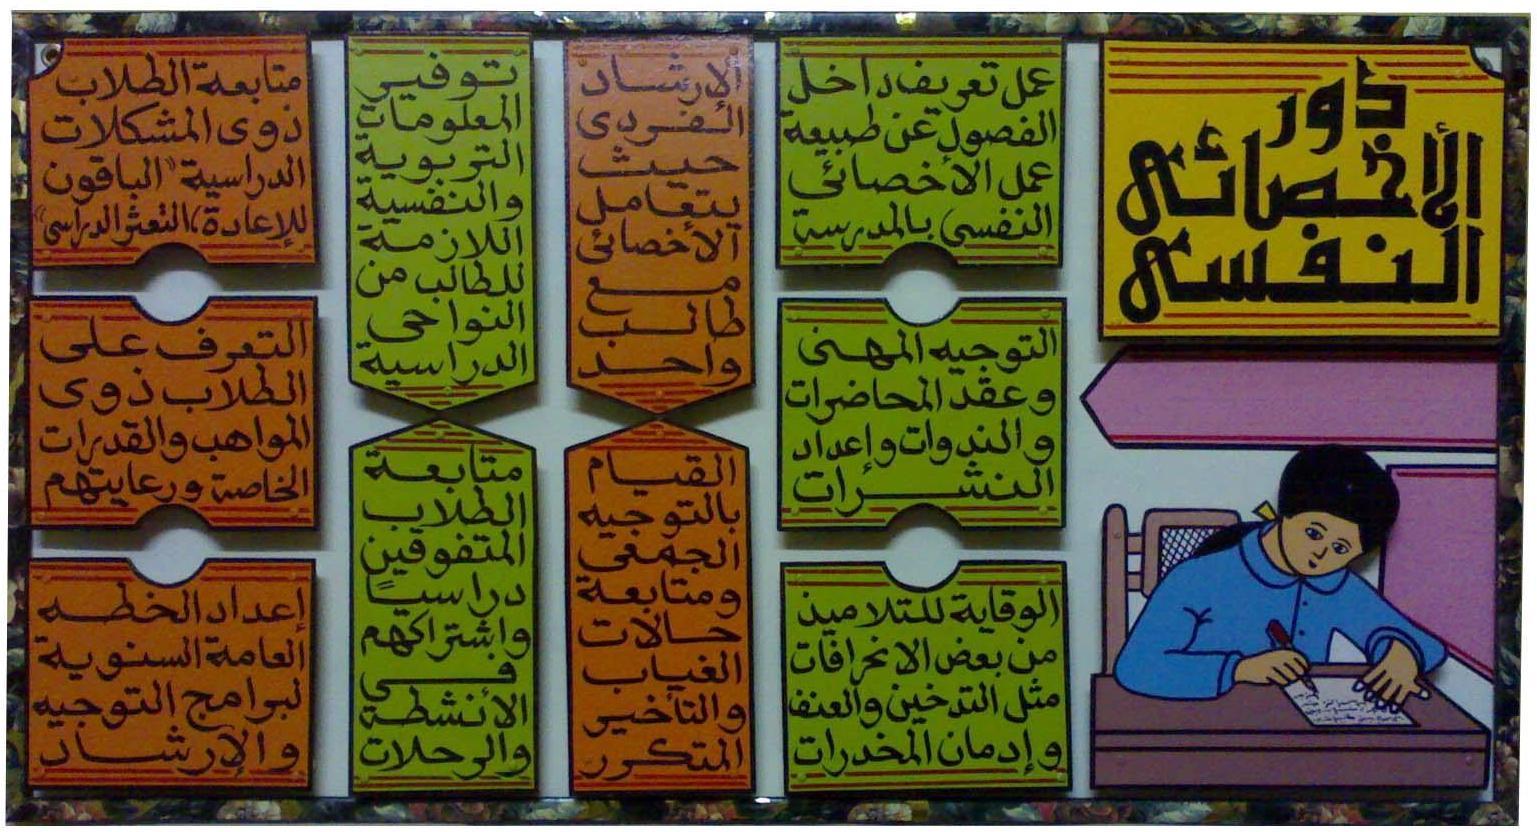 دور
الأخصائى
النفسى
عمل تعريف داخل
الفصول عن طبيعة
عمل الأخصائى
النفسى بالمدرسة
التوجيه المهنى
وعقد المحاضرات
والندوات وإعداد
النشرات
الوقاية للتلاميذ
من بعض الانحرافات
مثل التدخين والعنف
وإدمان المخدرات
الإرشاد
الفردى
حيث
يتعامل
الأخصائى
مع
طالب
واحد
القيام
بالتوجيه
الجمعى
ومتابعة
حالات
الغياب
والتأخير
المتكرر
توفير
المعلومات
التربوية
والنفسية
اللازمة
للطالب من
النواحى
الدراسية
متابعة
الطلاب
المتفوقين
دراسياً
واشتراكهم
فى
الأنشطة
والرحلات
متابعة الطلاب
ذوى المشكلات
الدراسية "الباقون
للإعادة، التعثر الدراسى"
التعرف على
الطلاب ذوى
المواهب والقدرات
الخاصة ورعايتهم
إعداد الخطه
العامة السنوية
لبرامج التوجيه
والإرشاد